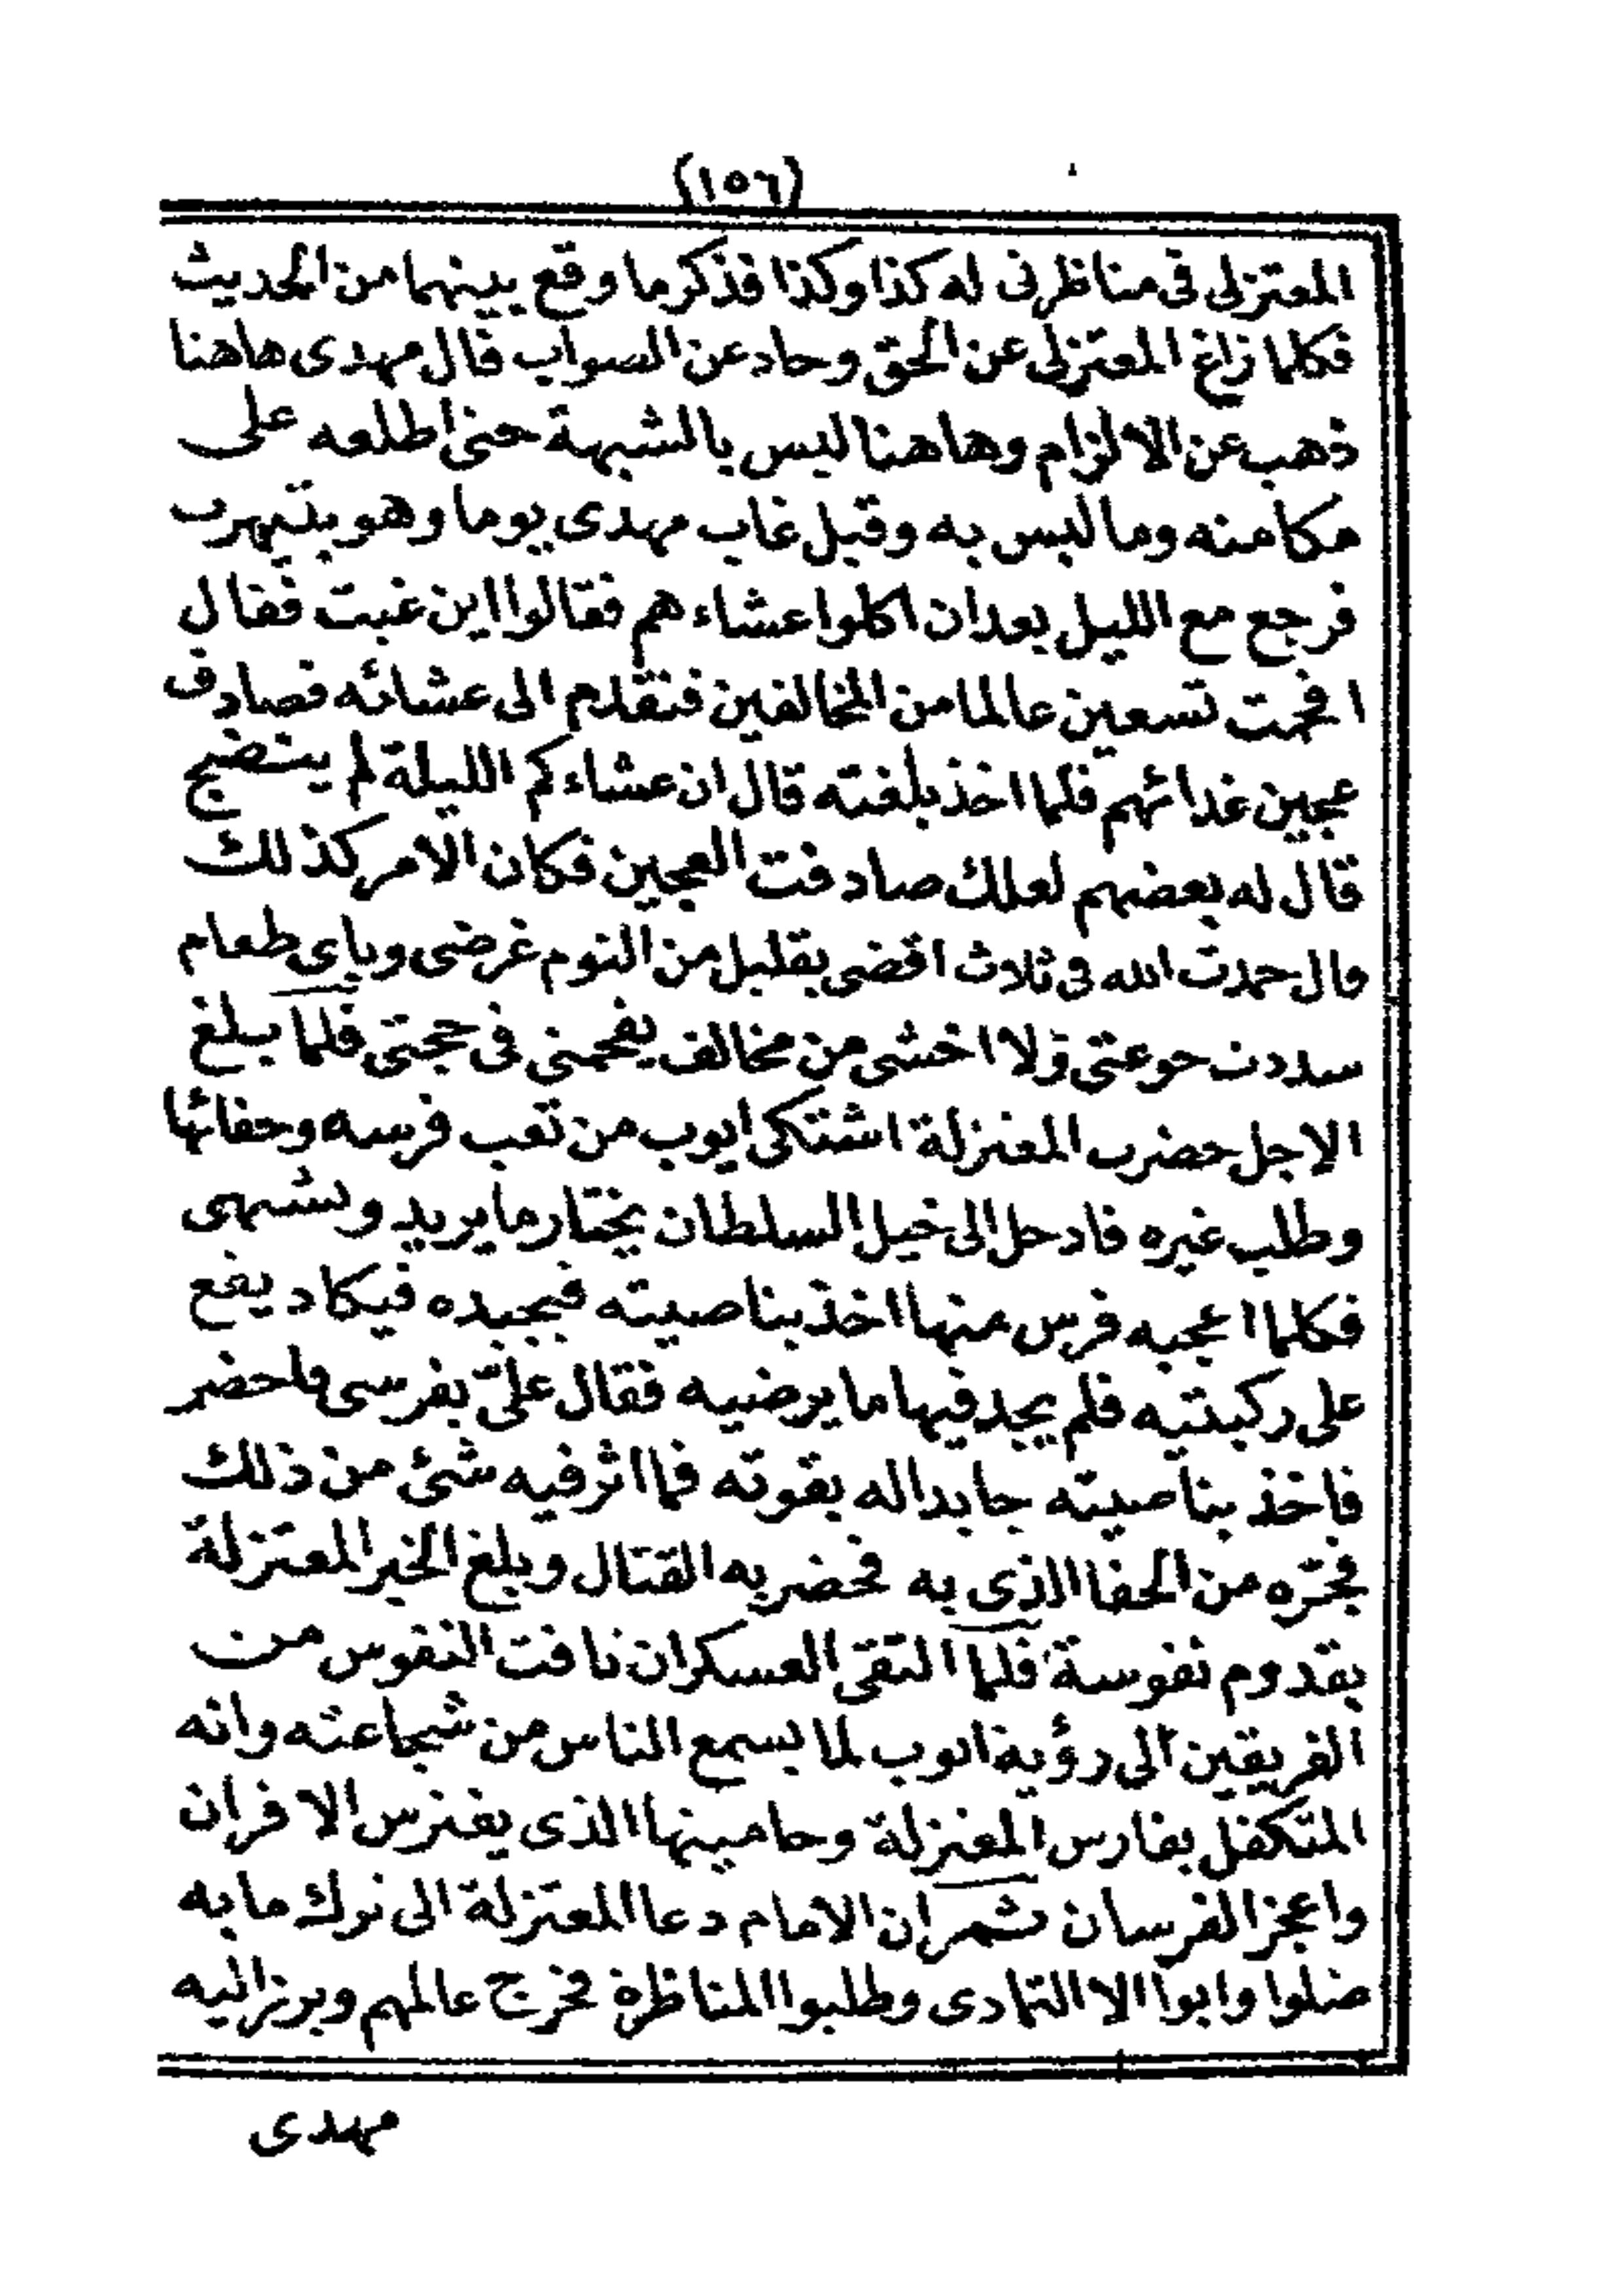 (١٥٦)
المعتزلى فى مناظرنى له كذا وكذا فذكر ما وقع بينهما من الحديث
فكلما زاغ المعتزلى عن الحق وحاد عن الصواب قال مهدى هاهنا
ذهب عن الالزام وهاهنا لبس بالشبهة حتى اطلعه على
مكامنه وما لبس به وقيل غاب مهدى يوما وهو بتيهرت
فرجع مع الليل بعد ان اكلوا عشاءهم فقالوا اين غبت فقال
افحمت تسعين عالما من المخالفين فتقدم الى عشائه فصادف
عجين غدائهم فلما اخذ بلغته قال ان عشاءكم الليلة لم ينضج
قال له بعضهم لعلك صادفت العجين فكان الامر كذلك
قال حمدت الله فى ثلاث اقضى بقليل من النوم غرضى وباى طعام
سددت جوعتى ولا اخشى من مخالف يفحمنى فى حجتى فلما بلغ
الاجل حضرب المعتزلة اشتكى ايوب من تعب فرسه وحفائها
وطلب غيره فادخل الى خيل السلطان يختار ما يريد ويشتهى
فكلما اعجبه فرس منها اخذ بناصيته فيجبده فيكاد يقع
على ركبتيه فلم يجد فيها ما يرضيه فقال علىّ بفرسى فاحضر
فاخذ بناصيته جابدا له بقوته فما اثر فيه شئ من ذلك
فجرّه من الحفا الذى به فحضر به القتال وبلغ الخبر المعتزلة
بقدوم نفوسة فلما التقى العسكران تاقت النفوس من
الفريقين الى رؤية ايوب لما يسمع الناس من شجاعته وانه
المتكفل بفارس المعتزلة وحاميتها الذى يفترس الاقران
واعجز الفرسان ثم ان الامام دعا المعتزلة الى ترك ما به
ضلوا وابوا الا التمادى وطلبوا المناظرة فخرج عالمهم وبرز اليه
مهدى